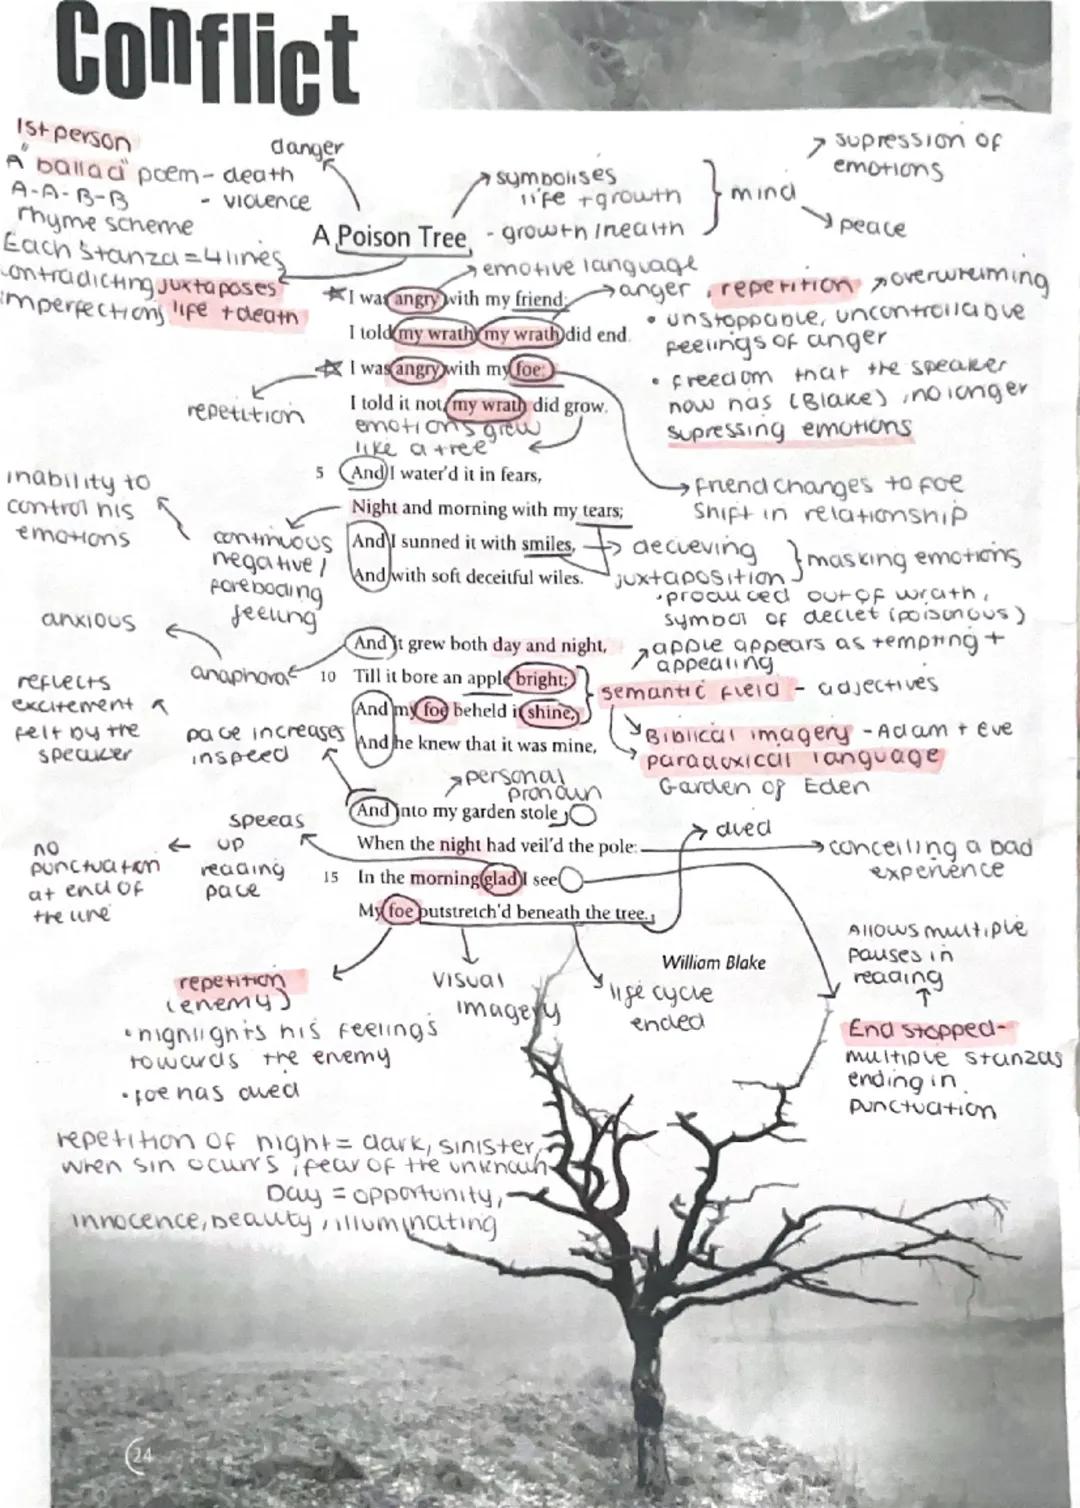 Conflict
1st person
A "ballad" poem - death
- violence
A-A-B-B
rhyme scheme
Each stanza = 4 lines
contradicting juxtaposes
imperfections life + death
danger
symbolises
life + growth
- growth / health
mind
supression of
emotions
peace
A Poison Tree
emotive language
anger
I was angry with my friend;
I told my wrath, my wrath did end.
I was angry with my foe:
I told it not, my wrath did grow.
repetition
emotions grew
like a tree
repetition
overwhelming
• unstoppable, uncontrollable
feelings of anger
• freedom that the speaker
now has (Blake), no longer
supressing emotions
friend changes to foe
Shift in relationship
5 And I water'd it in fears,
Night and morning with my tears;
And I sunned it with smiles,
And with soft deceitful wiles.
inability to
control his
emotions
continuous
negative /
foreboding
feeling
decieving
juxtaposition
masking emotions
• produced out of wrath,
symbol of deciet (poisonous)
apple appears as tempting +
appealing
anxious
anaphora
And it grew both day and night,
10 Till it bore an apple bright;
And my foe beheld it shine,
And he knew that it was mine,
semantic field - adjectives
Biblical imagery - Adam + Eve
paradoxical language
Garden of Eden
reflects
excitement
felt by the
speaker
pace increases
in speed
personal
pronoun
And into my garden stole,
When the night had veil'd the pole:
15 In the morning glad I see
My foe outstretch'd beneath the tree.
William Blake
speeds
up
reading
pace
no
punctuation
at end of
the line
died
concelling a bad
experience
Allows multiple
pauses in
reading
End stopped-
multiple stanzas
ending in
punctuation
repetition
(enemy)
• highlights his feelings
towards the enemy
• foe has died
visual
imagery
life cycle
ended
repetition of night = dark, sinister,
when sin ocurrs, fear of the unknown
Day = opportunity,
innocence, beauty, illuminating
24